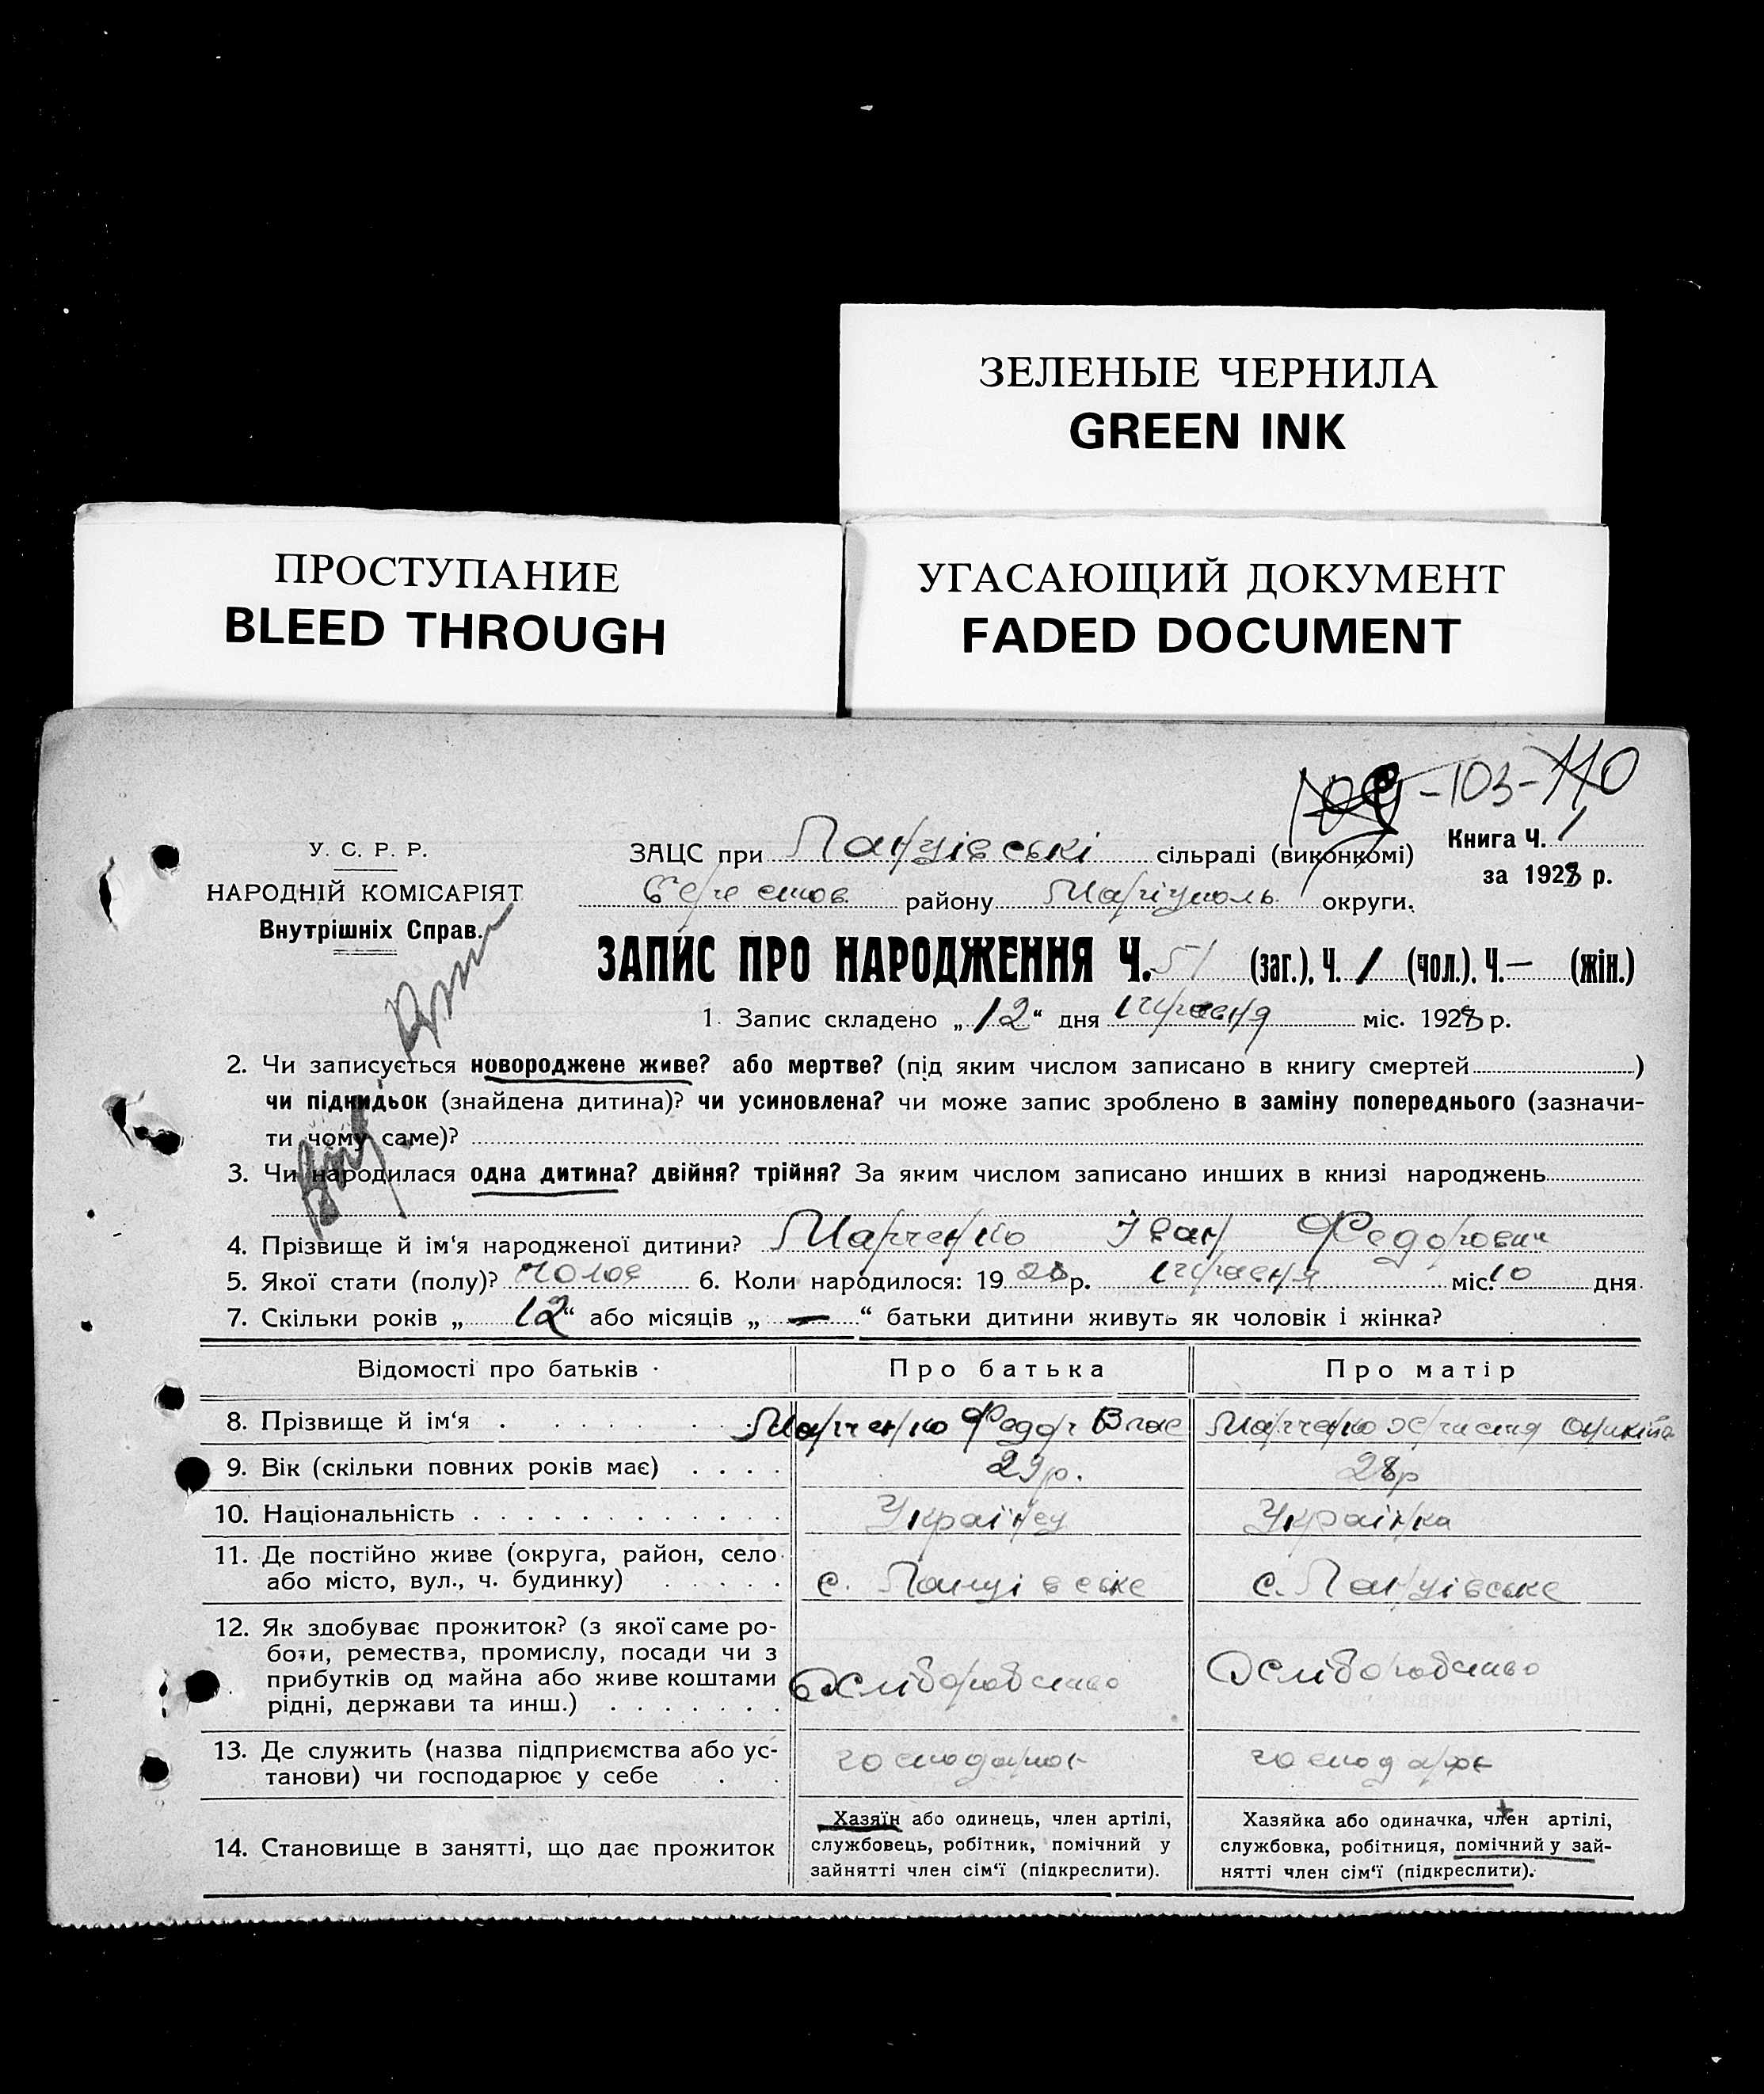 ЗЕЛЕНЫЕ ЧЕРНИЛА
GREEN INK
ПРОСТУПАНИЕ
BLEED THROUGH
УГАСАЮЩИЙ ДОКУМЕНТ
FADED DOCUMENT
-103-110
У. С. Р. Р.
НАРОДНІЙ КОМІСАРІЯТ
Внутрішніх Справ.
ЗАЦС при Ланцівські сільраді (виконкомі)
Книга Ч. 1
за 1928 р.
району Маріуполь округи.
ЗАПИС ПРО НАРОДЖЕННЯ Ч. 51 (заг.), Ч. 1 (чол.), Ч. — (жін.)
1. Запис складено „12“ дня міс. 1928 р.
2. Чи записується новороджене живе? або мертве? (під яким числом записано в книгу смертей)
чи підкидьок (знайдена дитина)? чи усиновлена? чи може запис зроблено в заміну попереднього (зазначи-
ти чому саме)?
3. Чи народилася одна дитина? двійня? трійня? За яким числом записано инших в книзі народжень
4. Прізвище й ім‘я народженої дитини? Марченко Іван Федорович
5. Якої стати (полу)? чолов 6. Коли народилося: 1928 р. міс. 10 дня
7. Скільки років „12“ або місяців „—“ батьки дитини живуть як чоловік і жінка?
Відомості про батьків
Про батька
Про матір
8. Прізвище й ім‘я Марченко Федор Влас Марченко
9. Вік (скільки повних років має) 29 р. 28 р
10. Національність Українец Українка
11. Де постійно живе (округа, район, село
або місто, вул., ч. будинку) с. Ланцівське с. Ланцівське
12. Як здобуває прожиток? (з якої саме ро-
боти, ремества, промислу, посади чи з
прибутків од майна або живе коштами
рідні, держави та инш.) Хліборобство Хліборобство
13. Де служить (назва підприємства або ус-
танови) чи господарює у себе
14. Становище в занятті, що дає прожиток
Хазяїн або одинець, член артілі,
службовець, робітник, помічний у
зайнятті член сім‘ї (підкреслити).
Хазяйка або одиначка, член артілі,
службовка, робітниця, помічний у зай-
нятті член сім‘ї (підкреслити).